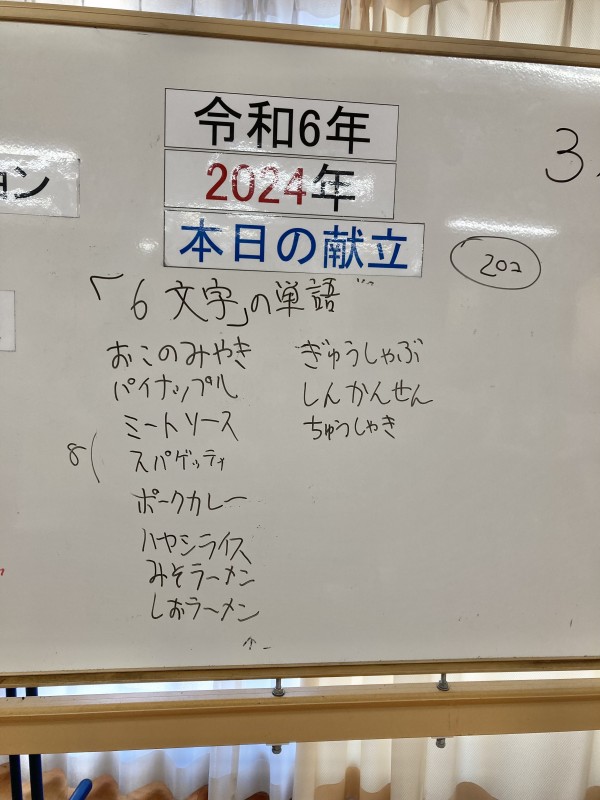 令和6年
2024年
本日の献立
ョン
「6文字」の単語
202
3
おこのみやき
パイナップル
ミートソース
8(
スパゲッティ
ポークカレー
ハヤシライス
みそラーメン
しおラーメン
ぎゅうしゃぶ
しんかんせん
ちゅうしゃき